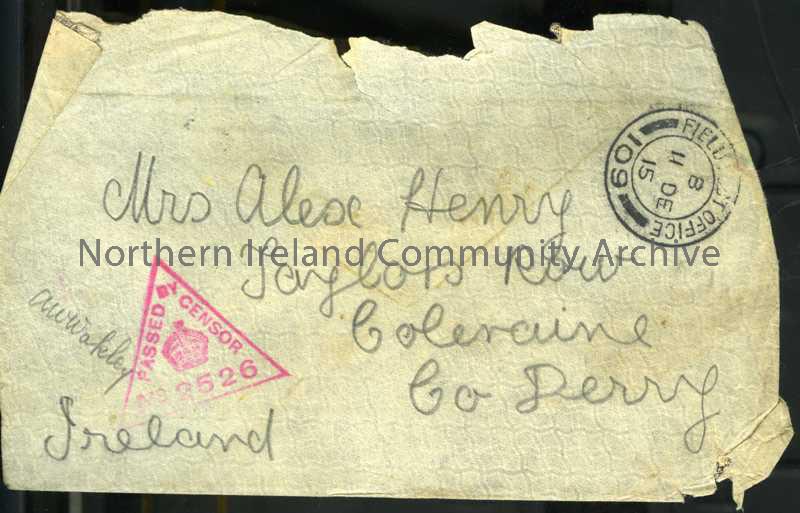 FIELD POST OFFICE
109
8
11 DE
15
Mrs Alex Henry
Northern Ireland Community Archive
Taylors Row
Coleraine
Co Derry
PASSED BY CENSOR
No 2526
Ireland